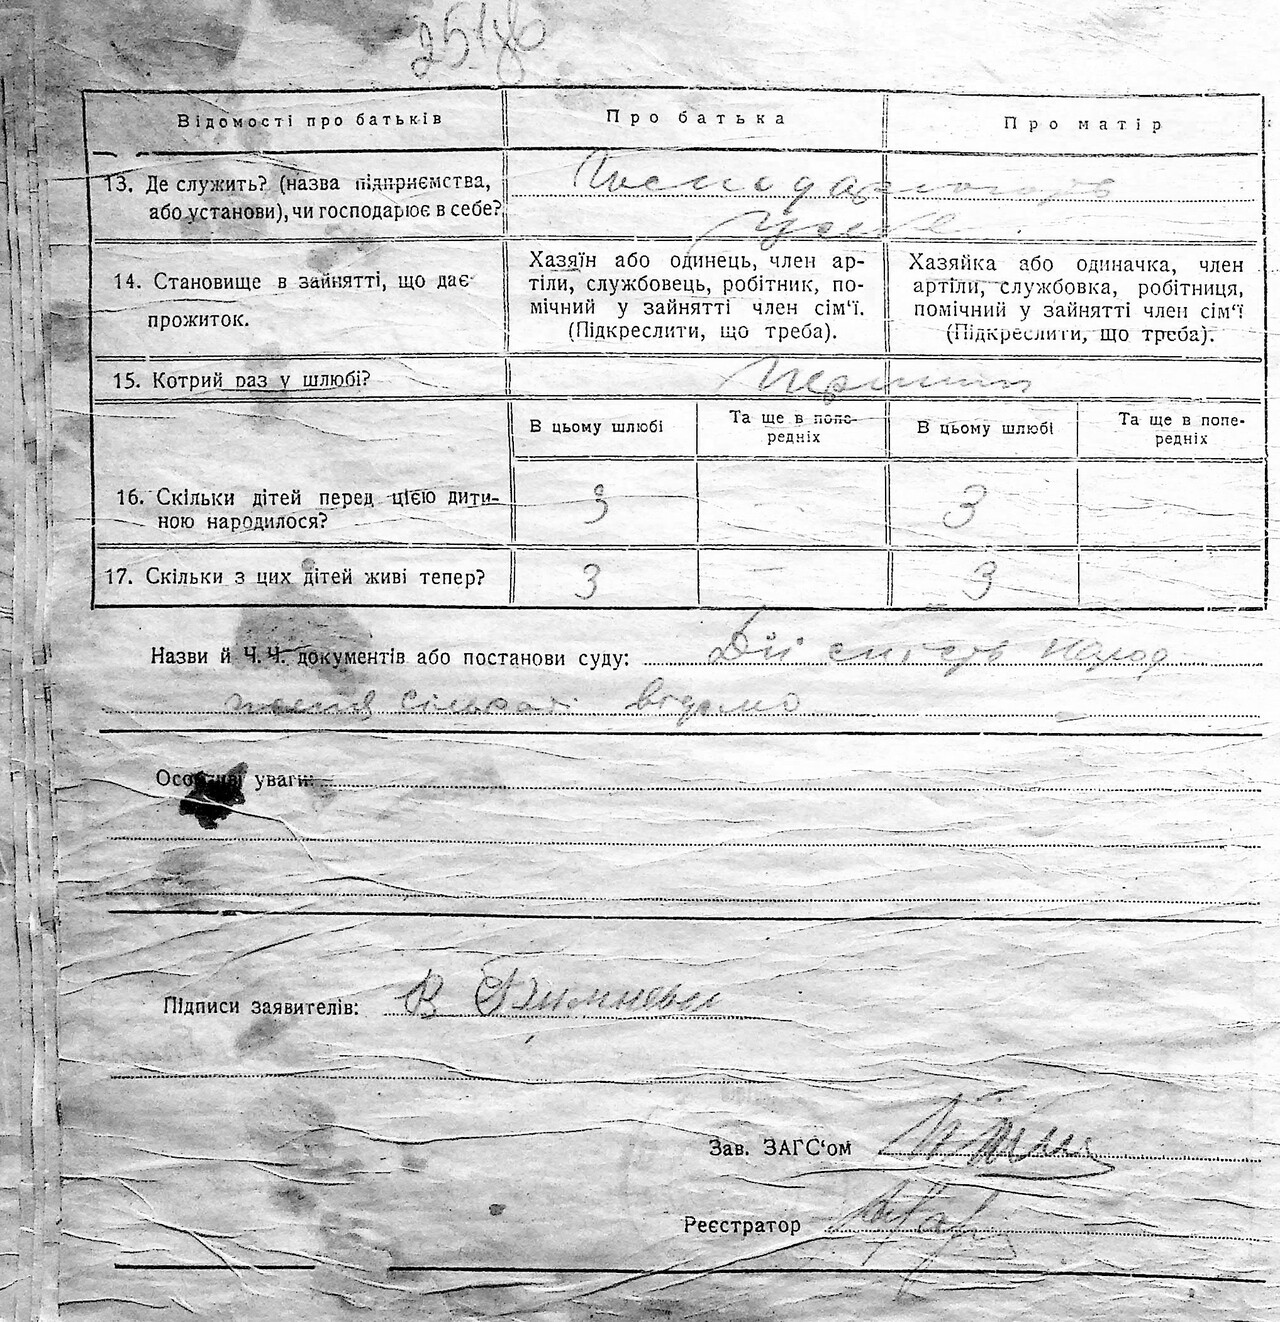 251зв
Відомості про батьків
Про батька
Про матір
13. Де служить? (назва підприємства, або установи), чи господарює в себе?
Господарюють
у себе
14. Становище в зайнятті, що дає прожиток.
Хазяїн або одинець, член ар-
тіли, службовець, робітник, по-
мічний у зайнятті член сім'ї.
(Підкреслити, що треба).
Хазяйка або одиначка, член
артіли, службовка, робітниця,
помічний у зайнятті член сім'ї
(Підкреслити, що треба).
15. Котрий раз у шлюбі?
Перший
В цьому шлюбі
Та ще в попе-
редніх
В цьому шлюбі
Та ще в попе-
редніх
16. Скільки дітей перед цією дити-
ною народилося?
3
3
17. Скільки з цих дітей живі тепер?
3
—
3
Назви й Ч.Ч. документів або постанови суду: Дійсність народ
ження сільраді відомо
Особливі уваги:
Підписи заявителів: В
Зав. ЗАГС'ом
Реєстратор